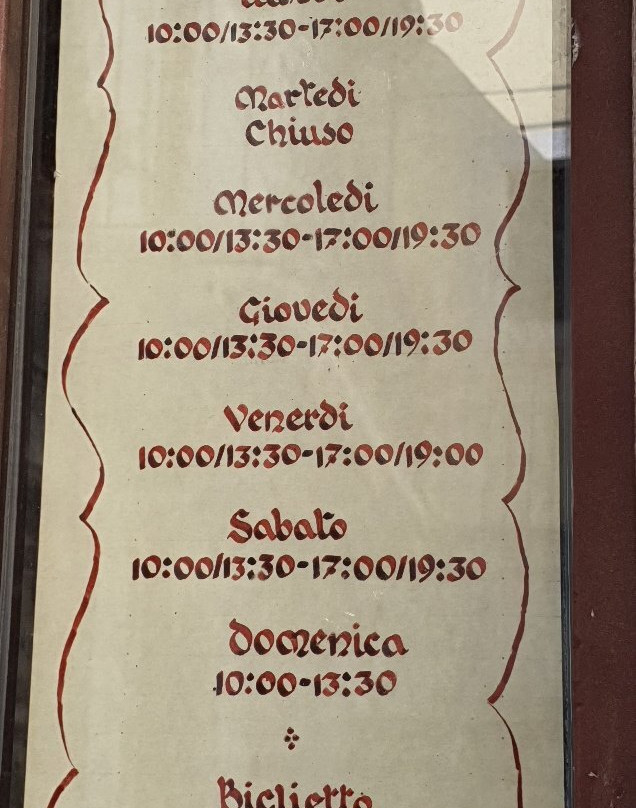 10:00/13:30-17:00/19:30
Martedi
Chiuso
Mercoledi
10:00/13:30-17:00/19:30
Giovedi
10:00/13:30-17:00/19:30
Venerdi
10:00/13:30-17:00/19:00
Sabato
10:00/13:30-17:00/19:30
Domenica
10:00-13:30
Biglietto